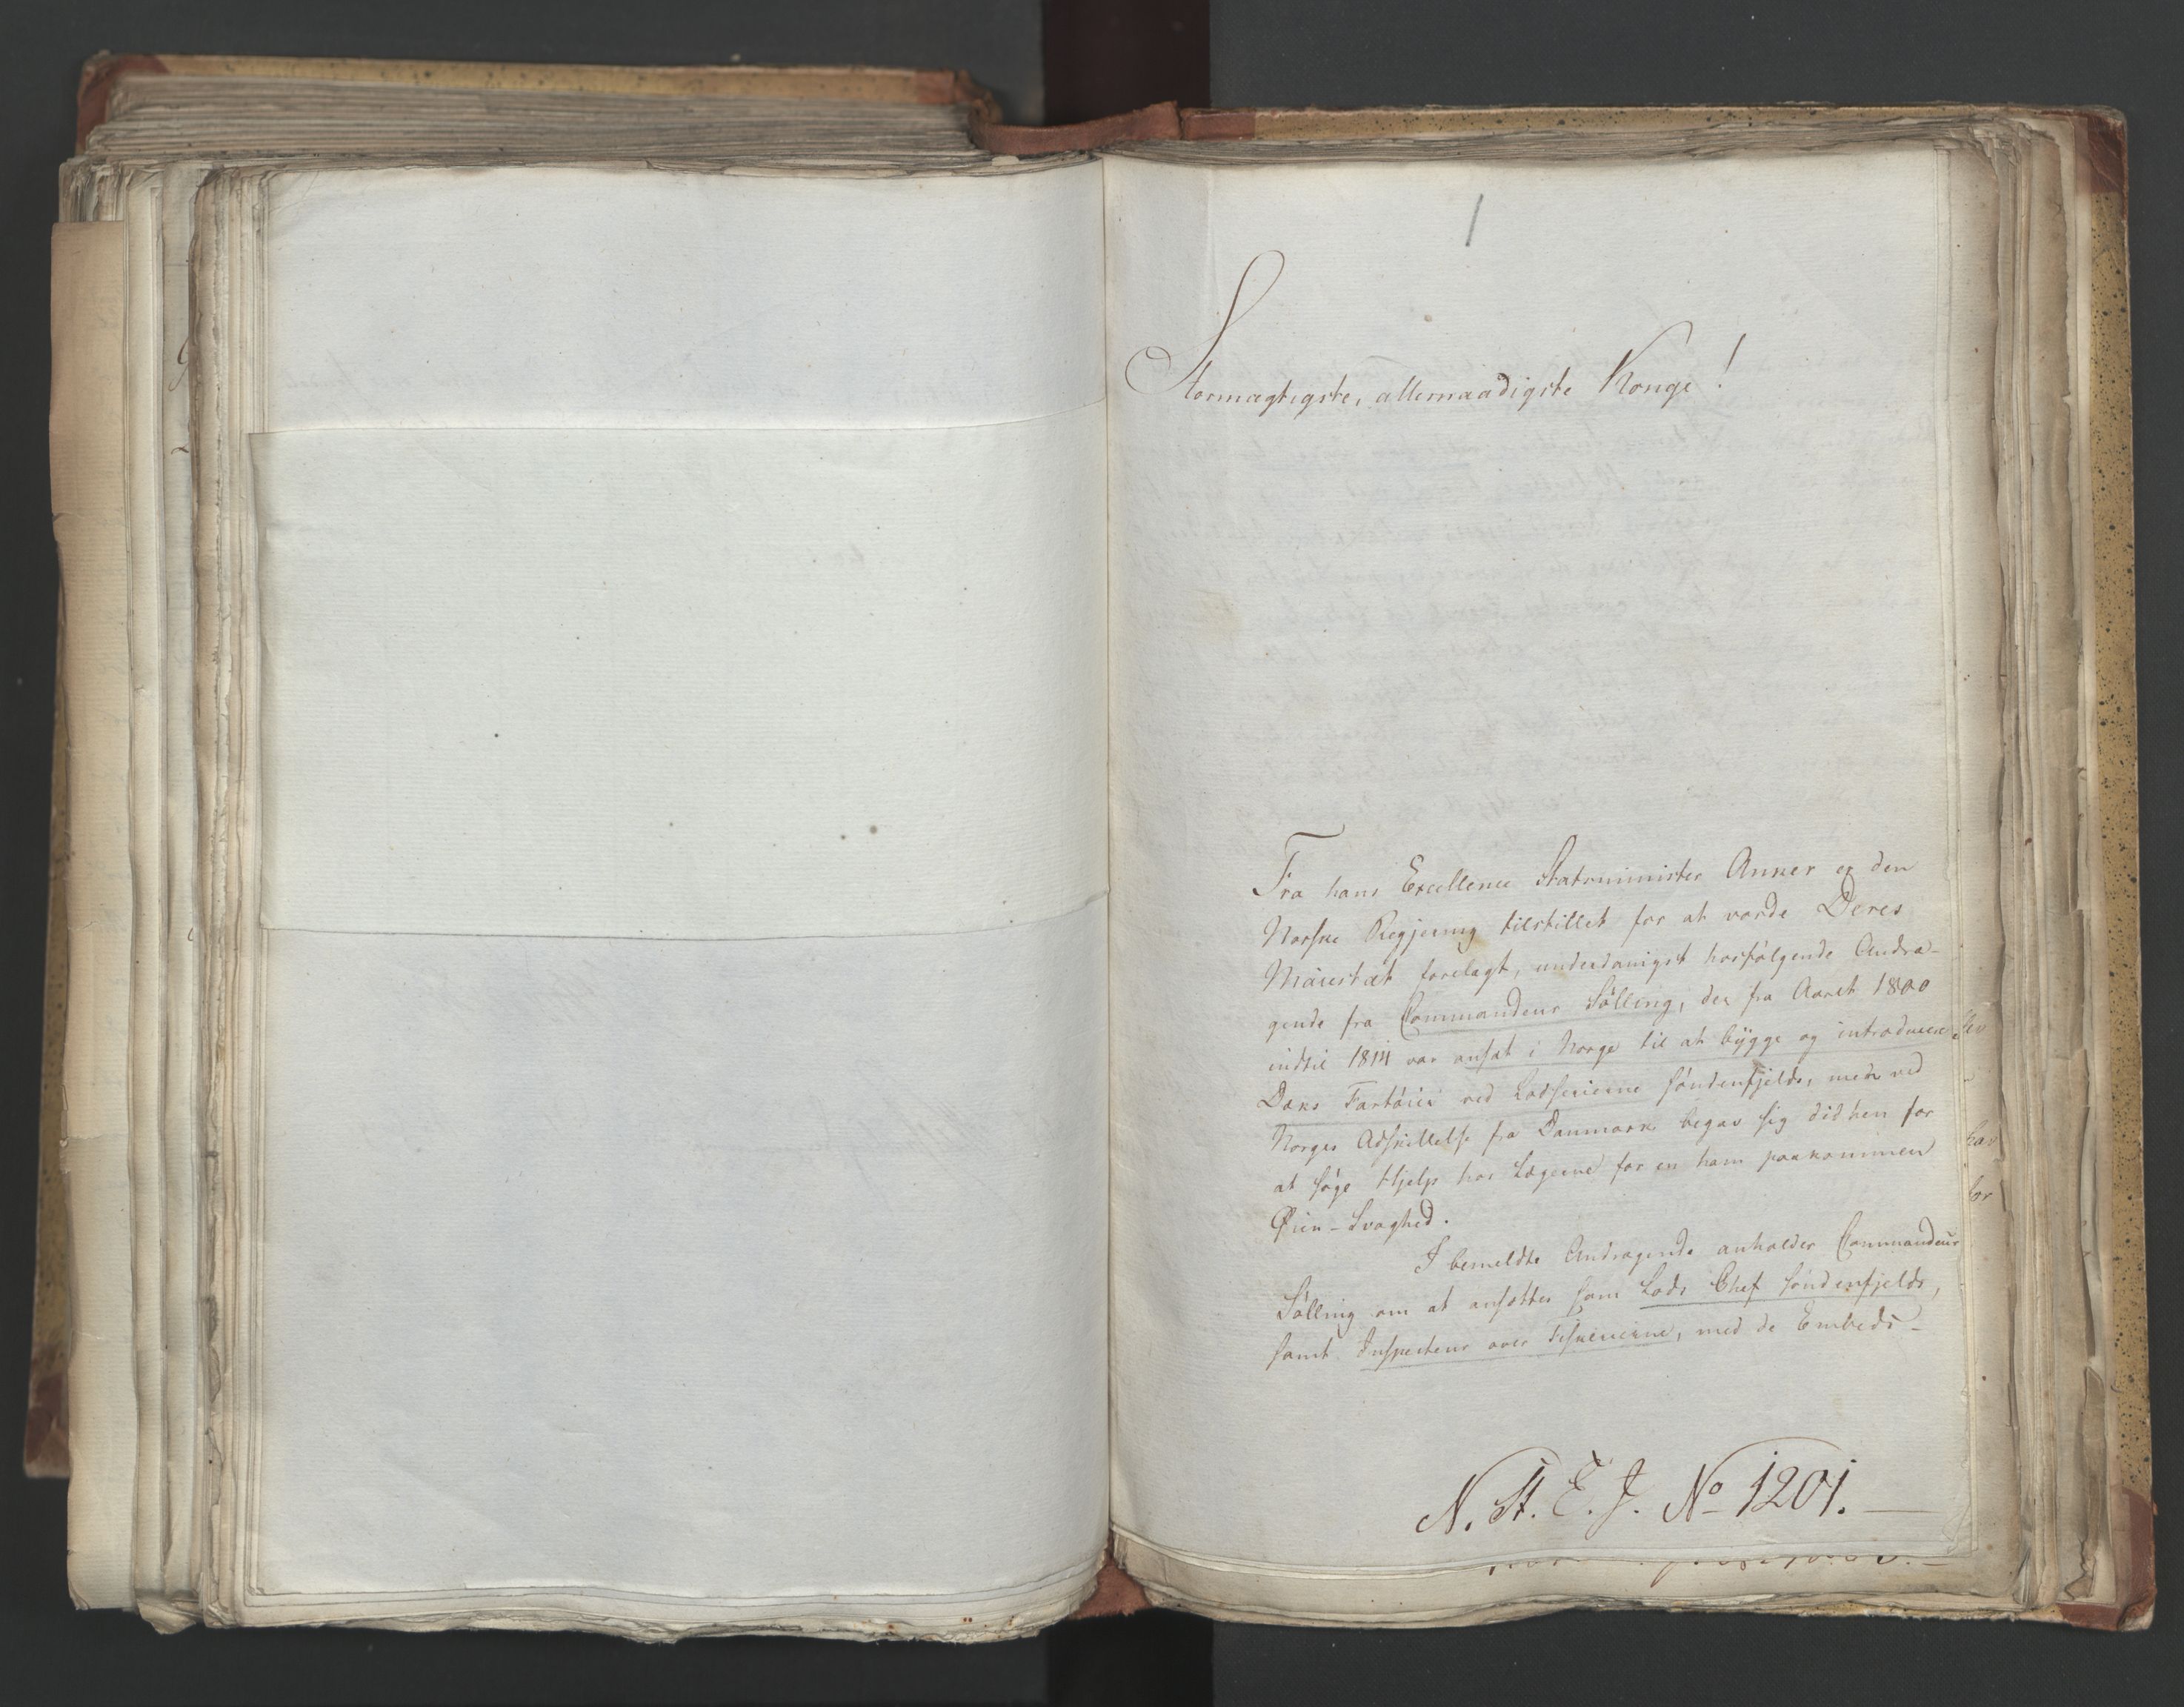 1
Stormægtigste, allernaadigste Konge!
Fra hans Excellence Statsminister Anker er den
Norske Regjering tilstillet for at vorde Deres
Majestæt forelagt, underdanigst hosfølgende Andra-
gende fra Commandeur Sølling, der fra Aaret 1800
indtil 1814 var ansat i Norge til at bygge og introducere
Dæks Fartøier ved Lodserierne søndenfjelds, men ved
Norges Adskillelse fra Danmark begav sig didhen for
at søge Hjelp hos Lægerne for en ham paakommen
Øien-Svaghed.
I bemeldte Andragende anholder Commandeur
Sølling om at ansættes som Lods Chef søndenfjelds,
samt Inspecteur over Fiskerierne, med de Embeds-
N. St. E. J. No 1201.